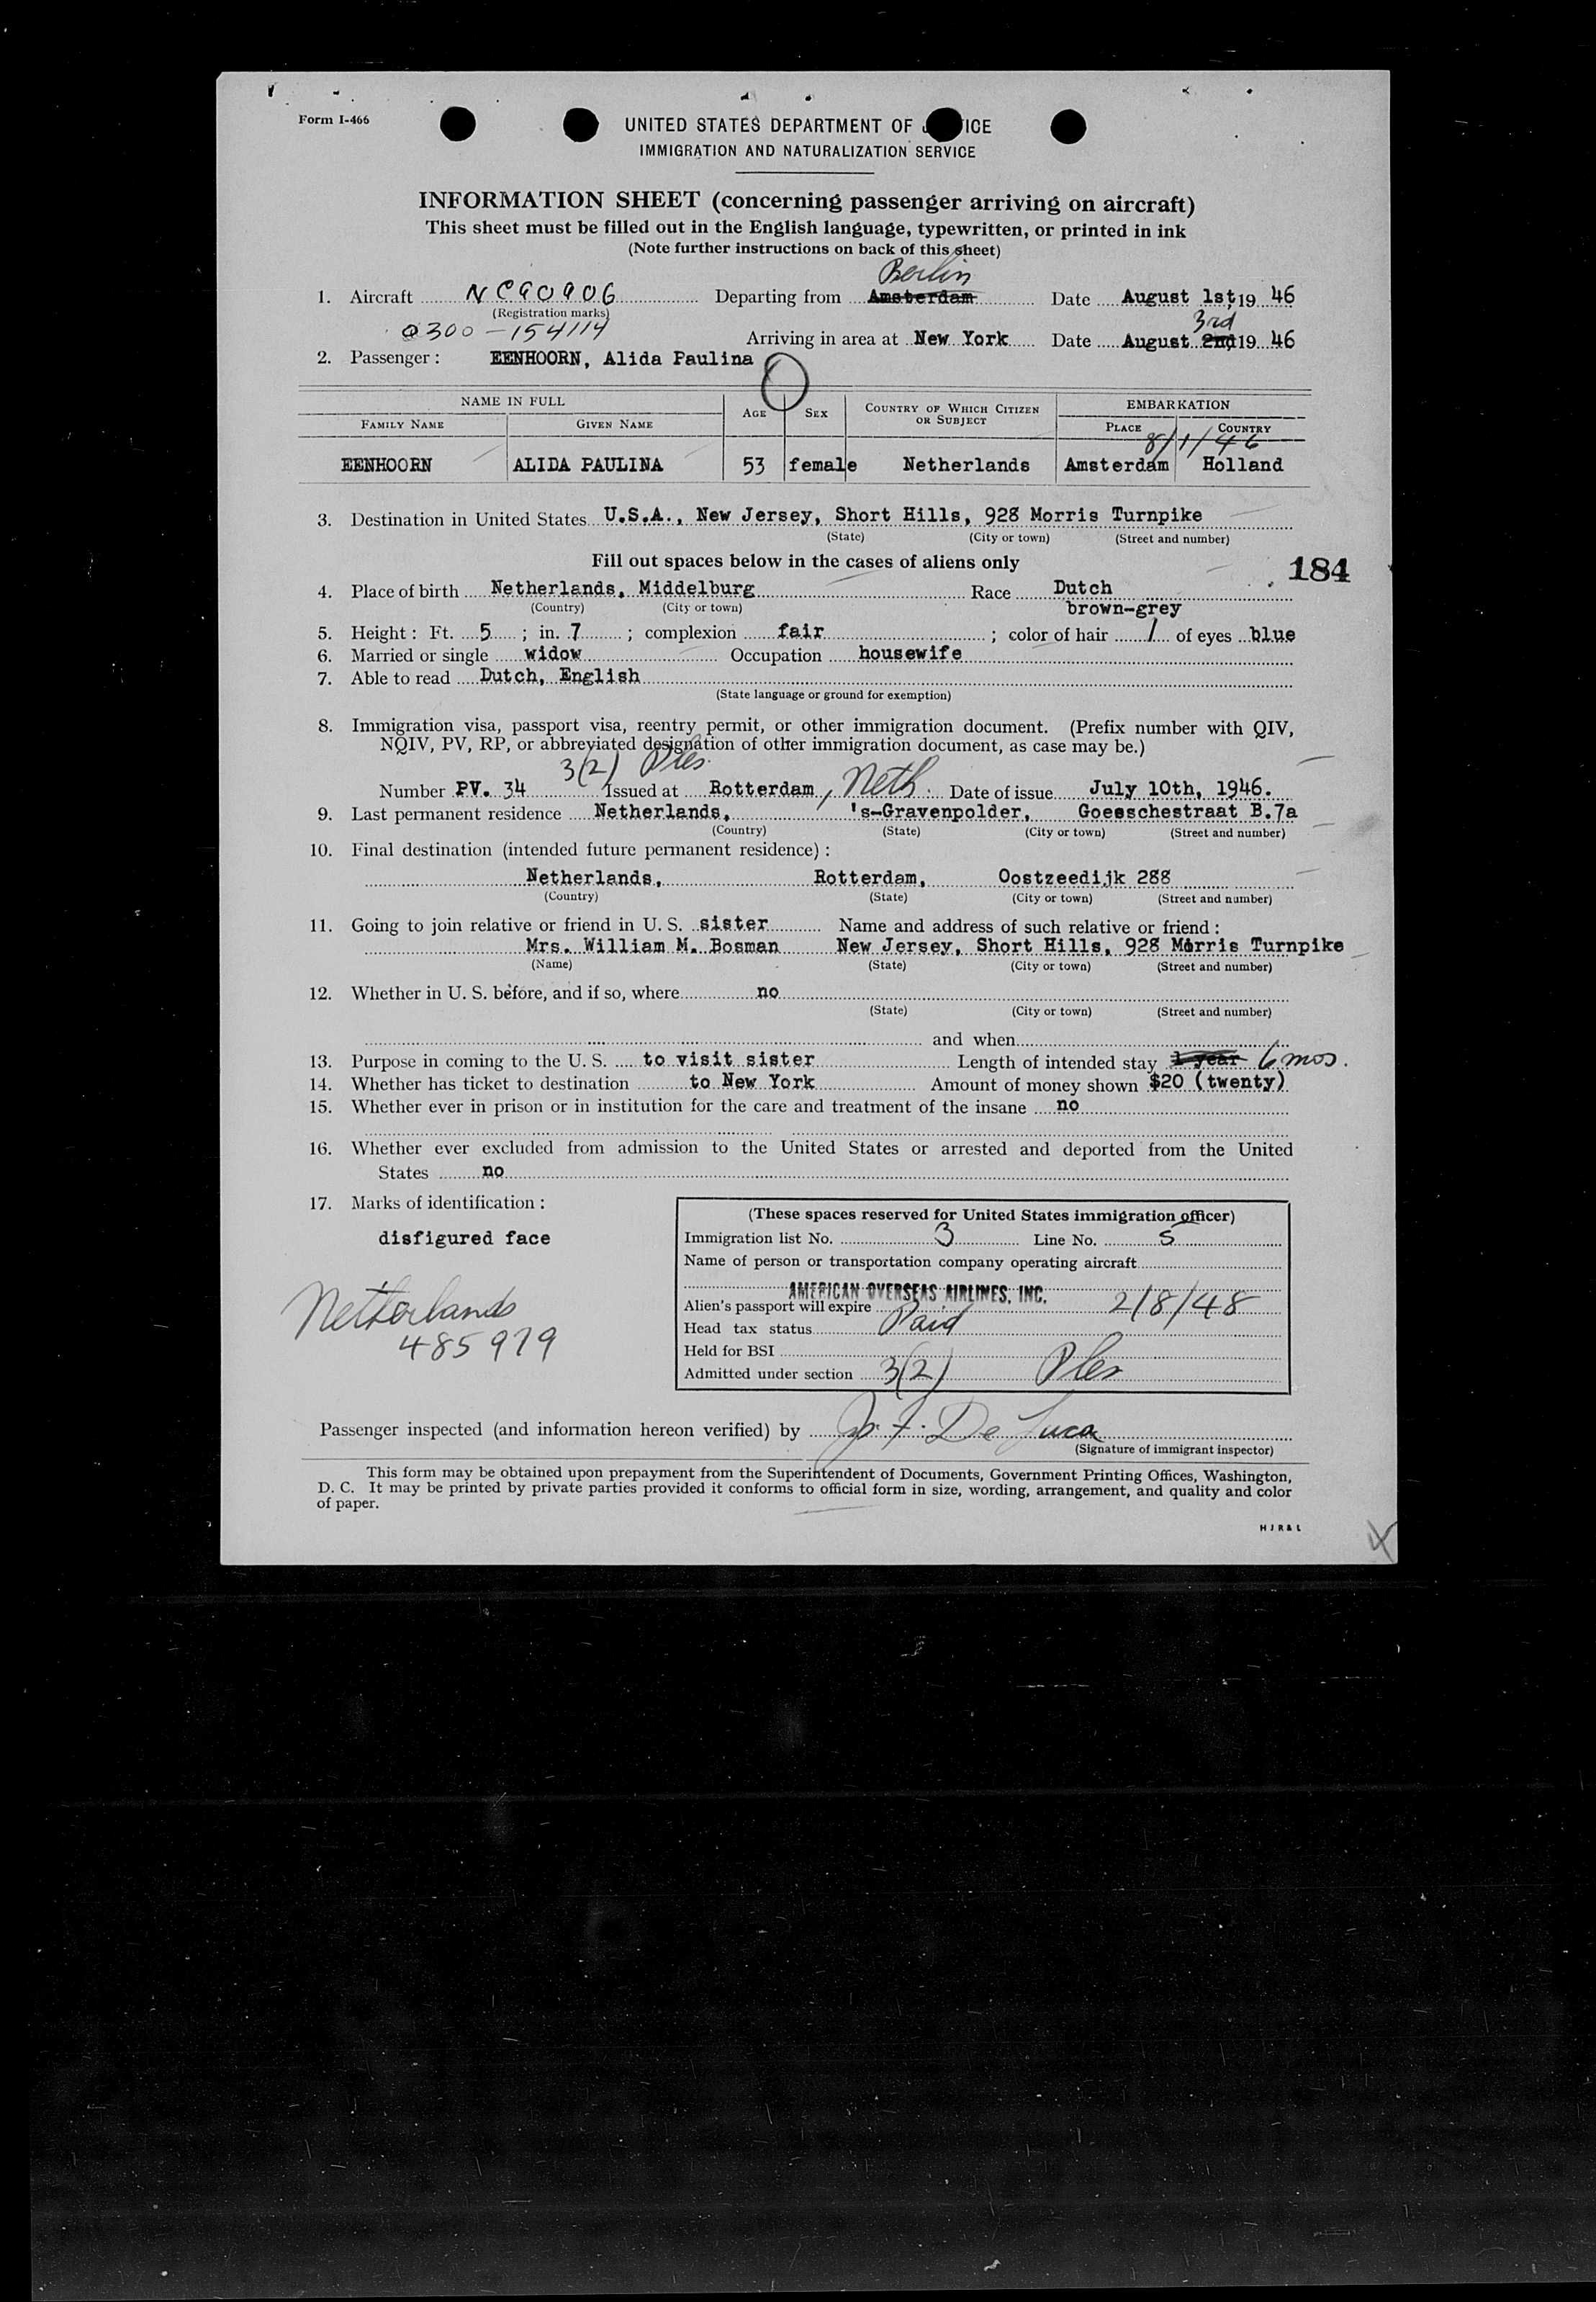 Form I-466
UNITED STATES DEPARTMENT OF ICE
IMMIGRATION AND NATURALIZATION SERVICE
INFORMATION SHEET (concerning passenger arriving on aircraft)
This sheet must be filled out in the English language, typewritten, or printed in ink
(Note further instructions on back of this sheet)
Berlin
1. Aircraft NC90906 Departing from Amsterdam Date August 1st, 19 46
(Registration marks)
0300-154114 3rd
Arriving in area at New York Date August 2nd 19 46
2. Passenger : EENHOORN, Alida Paulina
NAME IN FULL AGE SEX COUNTRY OF WHICH CITIZEN OR SUBJECT EMBARKATION
FAMILY NAME GIVEN NAME PLACE COUNTRY
8/1/46
EENHOORN ALIDA PAULINA 53 female Netherlands Amsterdam Holland
3. Destination in United States U.S.A., New Jersey, Short Hills, 928 Morris Turnpike
(State) (City or town) (Street and number)
Fill out spaces below in the cases of aliens only
184
4. Place of birth Netherlands, Middelburg Race Dutch
(Country) (City or town) brown-grey
5. Height : Ft. 5 ; in. 7 ; complexion fair ; color of hair / of eyes blue
6. Married or single widow Occupation housewife
7. Able to read Dutch, English
(State language or ground for exemption)
8. Immigration visa, passport visa, reentry permit, or other immigration document. (Prefix number with QIV,
NQIV, PV, RP, or abbreviated designation of other immigration document, as case may be.)
3(2) Ples.
Number PV. 34 Issued at Rotterdam, Neth. Date of issue July 10th, 1946.
9. Last permanent residence Netherlands, 's-Gravenpolder, Goesschestraat B.7a
(Country) (State) (City or town) (Street and number)
10. Final destination (intended future permanent residence) :
Netherlands, Rotterdam, Oostzeedijk 288
(Country) (State) (City or town) (Street and number)
11. Going to join relative or friend in U. S. sister Name and address of such relative or friend :
Mrs. William M. Bosman New Jersey, Short Hills, 928 Morris Turnpike
(Name) (State) (City or town) (Street and number)
12. Whether in U. S. before, and if so, where no
(State) (City or town) (Street and number)
and when
13. Purpose in coming to the U. S. to visit sister Length of intended stay 1 year 6 mos.
14. Whether has ticket to destination to New York Amount of money shown $20 (twenty)
15. Whether ever in prison or in institution for the care and treatment of the insane no
16. Whether ever excluded from admission to the United States or arrested and deported from the United
States no
17. Marks of identification :
disfigured face
Netherlands
485979
(These spaces reserved for United States immigration officer)
Immigration list No. 3 Line No. 5
Name of person or transportation company operating aircraft
AMERICAN OVERSEAS AIRLINES, INC.
Alien's passport will expire 2/8/48
Head tax status Paid
Held for BSI
Admitted under section 3(2) Ples
Passenger inspected (and information hereon verified) by Jo. F. De Luca
(Signature of immigrant inspector)
This form may be obtained upon prepayment from the Superintendent of Documents, Government Printing Offices, Washington,
D. C. It may be printed by private parties provided it conforms to official form in size, wording, arrangement, and quality and color
of paper.
H J R & L
4